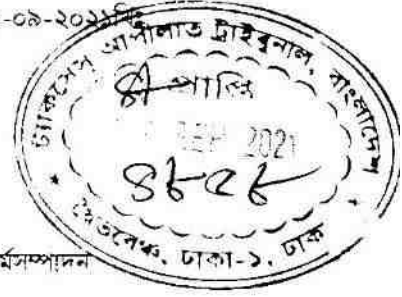 -০৯-২০২১
ট্যাকসেস আপীলাত ট্রাইবুনাল, বাংলাদেশ
প্রাপ্তি
SEP 2021
৪৮৫৮
দ্বৈতবেঞ্চ, ঢাকা-১, ঢাকা
র্মসম্পাদন